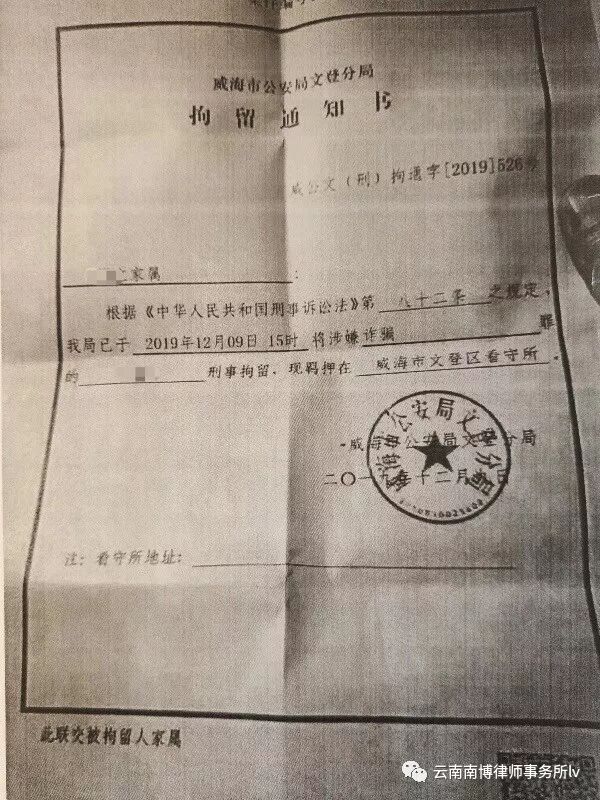 威海市公安局文登分局
拘留通知书
威公文（刑）拘通字[2019]526号
家属：
根据《中华人民共和国刑事诉讼法》第八十二条之规定，
我局已于2019年12月09日15时将涉嫌诈骗罪
的 刑事拘留，现羁押在威海市文登区看守所。
威海市公安局文登分局
二〇一 年十二月 日
威海市公安局文登分局
注：看守所地址：
此联交被拘留人家属
云南南博律师事务所lv